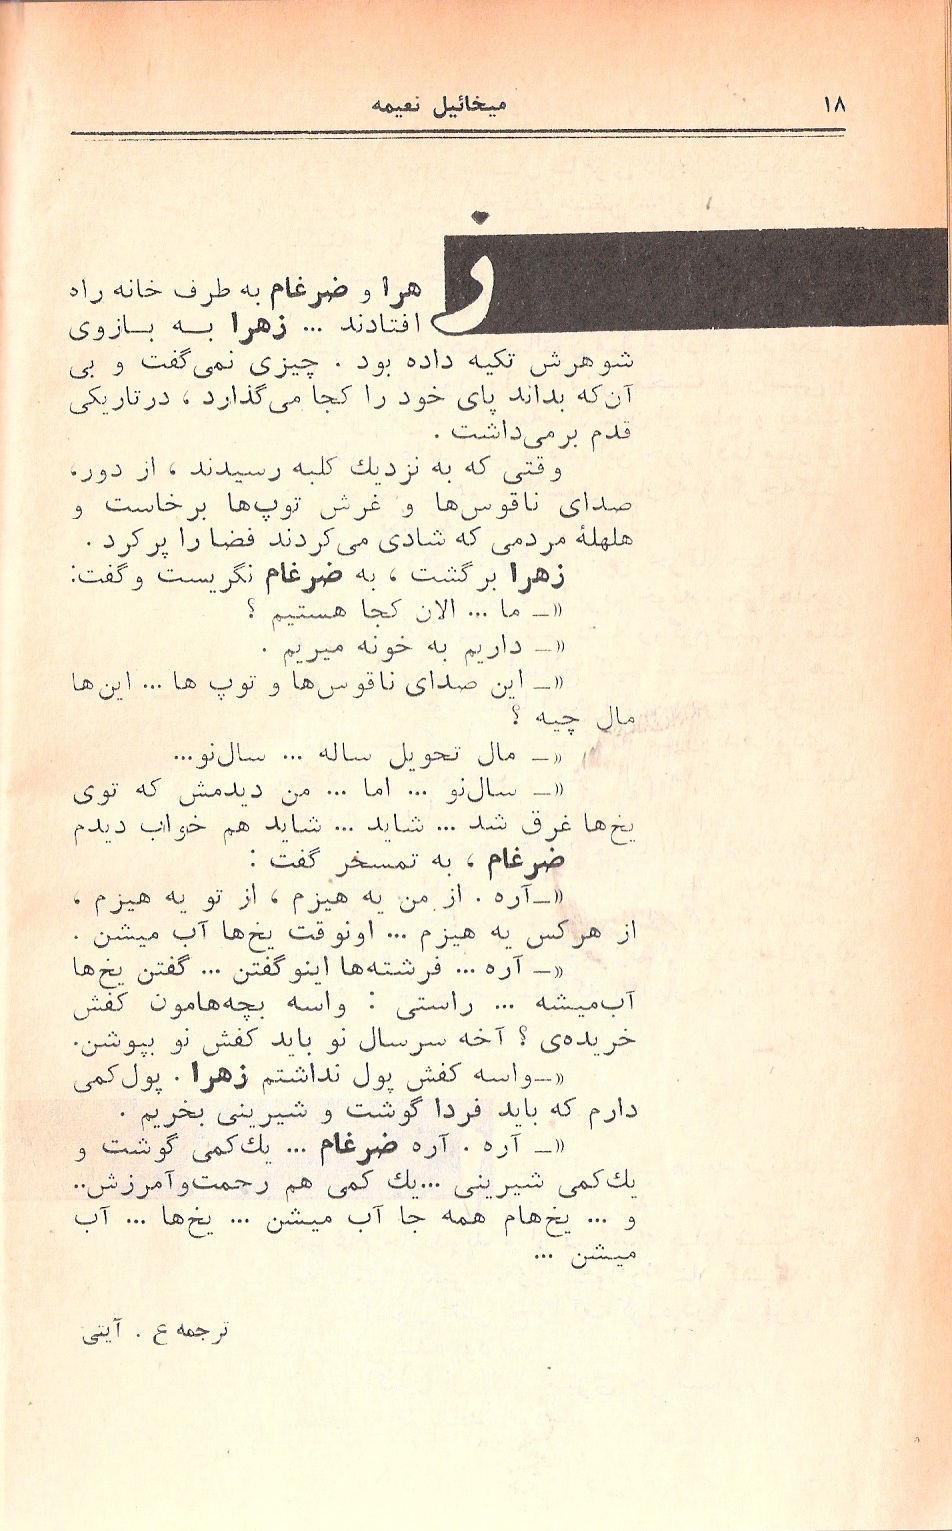 ۱۸ میخائیل نعیمه
ز
هرا و ضرغام به طرف خانه راه
افتادند ... زهرا بــه بــازوی
شوهرش تکیه داده بود . چیزی نمی‌گفت و بی
آن‌که بداند پای خود را کجا می‌گذارد ، درتاریکی
قدم برمی‌داشت .
وقتی که به نزدیك کلبه رسیدند ، از دور،
صدای ناقوس‌ها و غرش توپ‌ها برخاست و
هلهلهٔ مردمی که شادی می‌کردند فضا را پرکرد .
زهرا برگشت ، به ضرغام نگریست وگفت:
«ـ ما ... الان کجا هستیم ؟
«ـ داریم به خونه میریم .
«ـ این صدای ناقوس‌ها و توپ ها ... این‌ها
مال چیه ؟
«ـ مال تحویل ساله ... سال‌نو...
«ـ سال‌نو ... اما ... من دیدمش که توی
یخ‌ها غرق شد ... شاید ... شاید هم خواب دیدم
ضرغام ، به تمسخر گفت :
«ـآره . از من یه هیزم ، از تو یه هیزم ،
از هرکس یه هیزم ... اونوقت یخ‌ها آب میشن .
«ـ آره ... فرشته‌ها اینوگفتن ... گفتن یخ‌ها
آب‌میشه ... راستی : واسه بچه‌هامون کفش
خریده‌ی ؟ آخه سرسال نو باید کفش نو بپوشن.
«ـواسه کفش پول نداشتم زهرا . پول‌کمی
دارم که باید فردا گوشت و شیرینی بخریم .
«ـ آره . آره ضرغام ... یك‌کمی گوشت و
یك‌کمی شیرینی ...یك کمی هم رحمت‌وآمرزش..
و ... یخ‌هام همه جا آب میشن ... یخ‌ها ... آب
میشن ...
ترجمه ع . آیتی